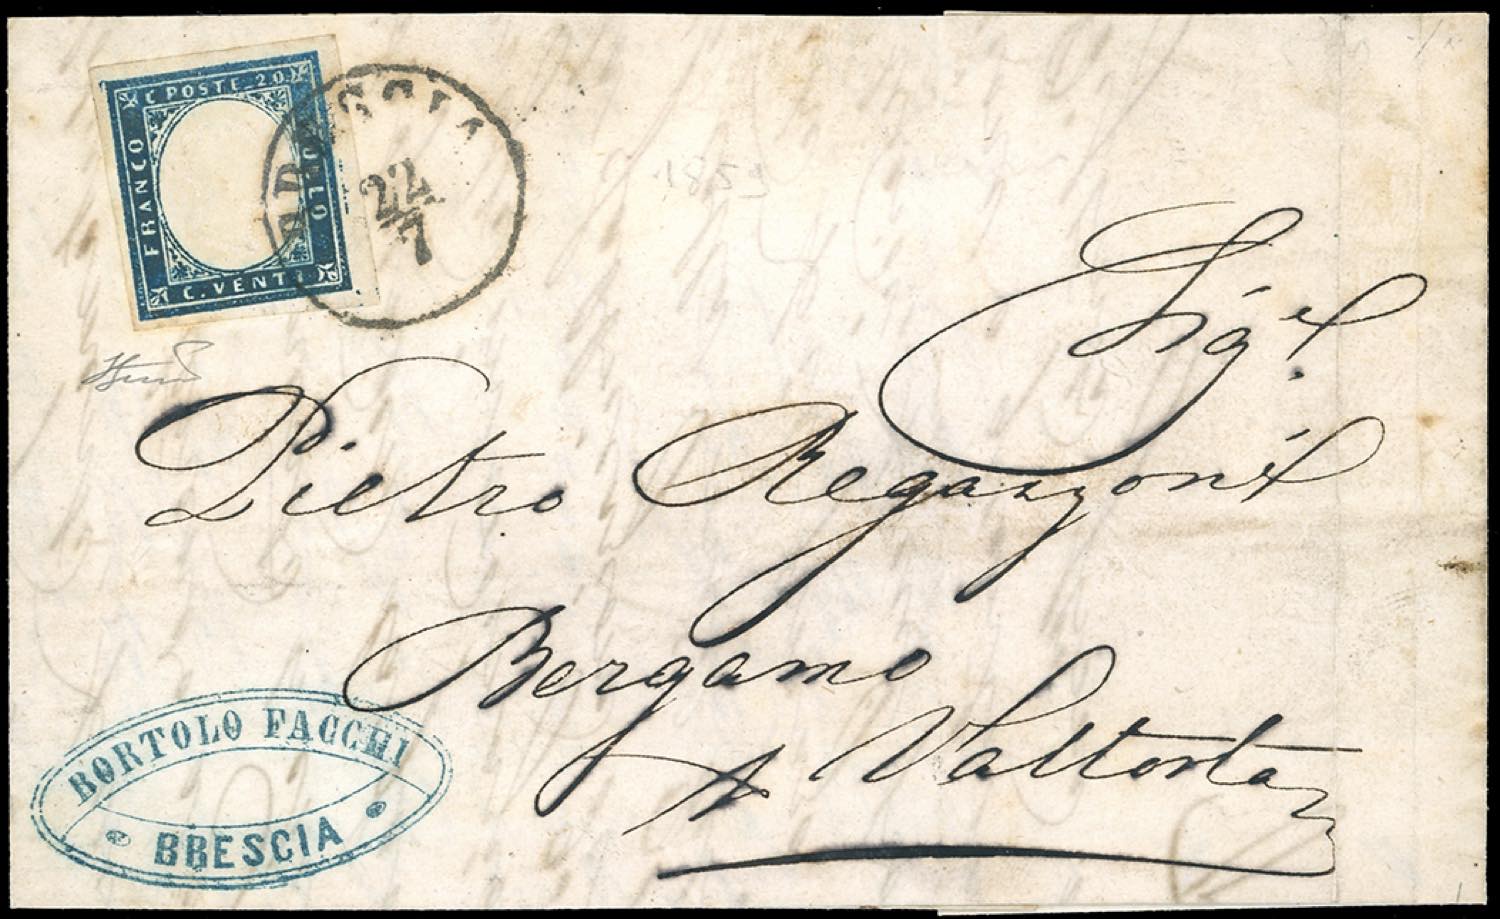 C POSTE 20
FRANCO
BOLLO
C. VENTI
BRESCIA
22
7
Sig.r
Pietro Regazzoni
Bergamo
Valtorta
BORTOLO FACCHI
BRESCIA